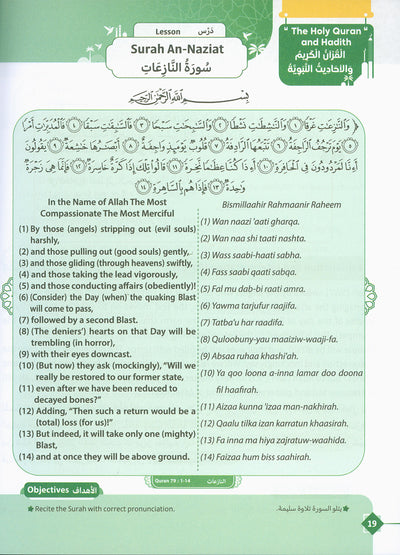 Lesson دَرْس
Surah An-Naziat
سُورَةُ النَّازِعَاتِ
" The Holy Quran
and Hadith
الْقُرْآنُ الْكَرِيمُ
وَالأَحَادِيثُ النَّبَوِيَّةُ "
بِسْمِ اللَّهِ الرَّحْمَٰنِ الرَّحِيمِ
وَالنَّازِعَاتِ غَرْقًا ١ وَالنَّاشِطَاتِ نَشْطًا ٢ وَالسَّابِحَاتِ سَبْحًا ٣ فَالسَّابِقَاتِ سَبْقًا ٤ فَالْمُدَبِّرَاتِ أَمْرًا
٥ يَوْمَ تَرْجُفُ الرَّاجِفَةُ ٦ تَتْبَعُهَا الرَّادِفَةُ ٧ قُلُوبٌ يَوْمَئِذٍ وَاجِفَةٌ ٨ أَبْصَارُهَا خَاشِعَةٌ ٩ يَقُولُونَ
أَءِنَّا لَمَرْدُودُونَ فِي الْحَافِرَةِ ١٠ أَءِذَا كُنَّا عِظَامًا نَّخِرَةً ١١ قَالُوا تِلْكَ إِذًا كَرَّةٌ خَاسِرَةٌ ١٢ فَإِنَّمَا هِيَ زَجْرَةٌ
وَاحِدَةٌ ١٣ فَإِذَا هُم بِالسَّاهِرَةِ ١٤
In the Name of Allah The Most
Compassionate The Most Merciful
(1) By those (angels) stripping out (evil souls)
harshly,
(2) and those pulling out (good souls) gently,
(3) and those gliding (through heavens) swiftly,
(4) and those taking the lead vigorously,
(5) and those conducting affairs (obediently)!
(6) (Consider) the Day (when) the quaking Blast
will come to pass,
(7) followed by a second Blast.
(8) (The deniers') hearts on that Day will be
trembling (in horror),
(9) with their eyes downcast.
(10) (But now) they ask (mockingly), "Will we
really be restored to our former state,
(11) even after we have been reduced to
decayed bones?"
(12) Adding, "Then such a return would be a
(total) loss (for us)!"
(13) But indeed, it will take only one (mighty)
Blast,
(14) and at once they will be above ground.
Bismillaahir Rahmaanir Raheem
(1) Wan naazi 'aati gharqa.
(2) Wan naa shi taati nashta.
(3) Wass saabi-haati sabha.
(4) Fass saabi qaati sabqa.
(5) Fal mu dab-bi raati amra.
(6) Yawma tarjufur raajifa.
(7) Tatba'u har raadifa.
(8) Quloobuny-yau maaiziw-waaji-fa.
(9) Absaa ruhaa khashi'ah.
(10) Ya qoo loona a-inna lamar doo doona
fil haafirah.
(11) Aizaa kunna 'izaa man-nakhirah.
(12) Qaalu tilka izan karratun khaasirah.
(13) Fa inna ma hiya zajratuw-waahida.
(14) Faizaa hum biss saahirah.
Quran 79 : 1-14 النازعات
Objectives الأهداف
Recite the Surah with correct pronunciation.
يتلو السورة تلاوة سليمة.
19